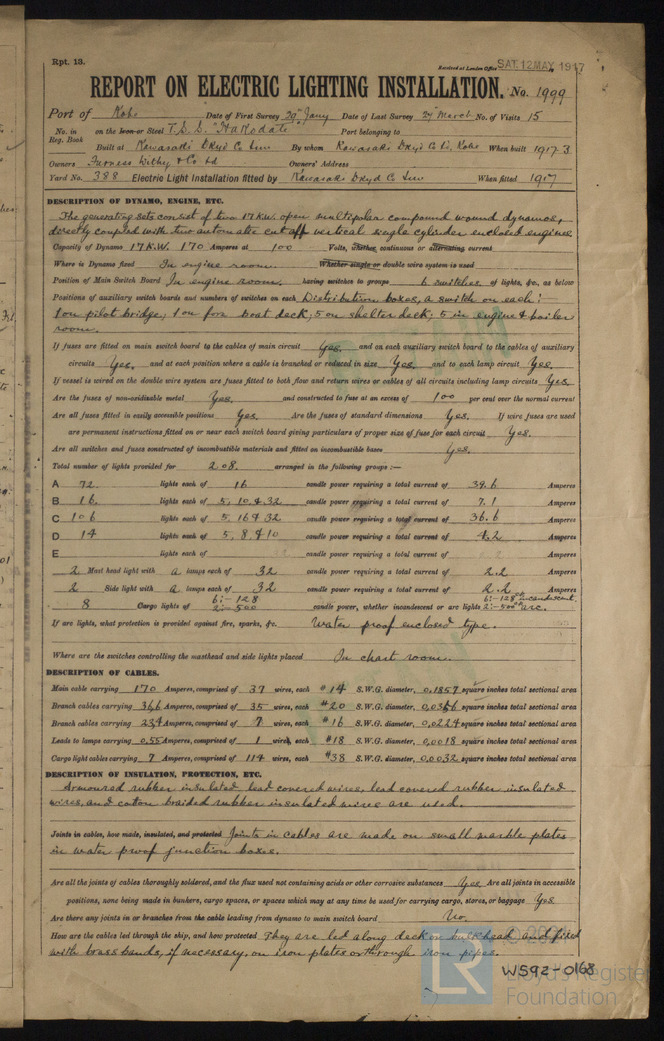 Rpt. 13.
Received at London Office SAT. 12 MAY 1917
REPORT ON ELECTRIC LIGHTING INSTALLATION. No. 1999
Port of Kobe Date of First Survey 29th Jany Date of Last Survey 27th March No. of Visits 15
No. in Reg. Book on the Iron or Steel T.S.S. "Hakodate" Port belonging to
Built at Kawasaki Dkyd Co Ltd By whom Kawasaki Dkyd Co Ld, Kobe When built 1917-3
Owners Furness Withy & Co Ld Owners' Address
Yard No. 388 Electric Light Installation fitted by Kawasaki Dkyd Co Ltd When fitted 1917
DESCRIPTION OF DYNAMO, ENGINE, ETC.
The generating sets consist of two 17 K.W. open multipolar compound wound dynamos,
directly coupled with two automatic cut off vertical single cylinder enclosed engines
Capacity of Dynamo 17 K.W. 170 Amperes at 100 Volts, whether continuous or alternating current
Where is Dynamo fixed In engine room. Whether single or double wire system is used
Position of Main Switch Board In engine room, having switches to groups 6 switches of lights, &c., as below
Positions of auxiliary switch boards and numbers of switches on each Distribution boxes, a switch on each:-
1 on pilot bridge; 1 on fore boat deck; 5 on shelter deck; 5 in engine & boiler
room.
If fuses are fitted on main switch board to the cables of main circuit Yes. and on each auxiliary switch board to the cables of auxiliary
circuits Yes. and at each position where a cable is branched or reduced in size Yes and to each lamp circuit Yes.
If vessel is wired on the double wire system are fuses fitted to both flow and return wires or cables of all circuits including lamp circuits Yes
Are the fuses of non-oxidizable metal Yes. and constructed to fuse at an excess of 100 per cent over the normal current
Are all fuses fitted in easily accessible positions Yes. Are the fuses of standard dimensions Yes. If wire fuses are used
are permanent instructions fitted on or near each switch board giving particulars of proper size of fuse for each circuit Yes.
Are all switches and fuses constructed of incombustible materials and fitted on incombustible bases Yes.
Total number of lights provided for 208. arranged in the following groups :—
A 72 lights each of 16 candle power requiring a total current of 39.6 Amperes
B 16 lights each of 5, 10 & 32 candle power requiring a total current of 7.1 Amperes
C 106 lights each of 5, 16 & 32 candle power requiring a total current of 36.6 Amperes
D 14 lights each of 5, 8 & 10 candle power requiring a total current of 4.2 Amperes
E lights each of candle power requiring a total current of Amperes
2 Mast head light with a lamps each of 32 candle power requiring a total current of 2.2 Amperes
2 Side light with a lamps each of 32 candle power requiring a total current of 2.2 Amperes
8 Cargo lights of 6:-128 2:-500 candle power, whether incandescent or arc lights 6:-128 incandescent. 2:-500 arc.
If arc lights, what protection is provided against fire, sparks, &c. Water proof enclosed type.
Where are the switches controlling the masthead and side lights placed In chart room.
DESCRIPTION OF CABLES.
Main cable carrying 170 Amperes, comprised of 37 wires, each #14 S.W.G. diameter, 0.1857 square inches total sectional area
Branch cables carrying 36.6 Amperes, comprised of 35 wires, each #20 S.W.G. diameter, 0.0366 square inches total sectional area
Branch cables carrying 23.4 Amperes, comprised of 7 wires, each #16 S.W.G. diameter, 0.0224 square inches total sectional area
Leads to lamps carrying 0.55 Amperes, comprised of 1 wires, each #18 S.W.G. diameter, 0.0018 square inches total sectional area
Cargo light cables carrying 7 Amperes, comprised of 114 wires, each #38 S.W.G. diameter, 0.0032 square inches total sectional area
DESCRIPTION OF INSULATION, PROTECTION, ETC.
Armoured rubber insulated lead covered wires, lead covered rubber insulated
wires, and cotton braided rubber insulated wires are used.
Joints in cables, how made, insulated, and protected Joints in cables are made on small marble plates
in water proof junction boxes.
Are all the joints of cables thoroughly soldered, and the flux used not containing acids or other corrosive substances Yes Are all joints in accessible
positions, none being made in bunkers, cargo spaces, or spaces which may at any time be used for carrying cargo, stores, or baggage Yes.
Are there any joints in or branches from the cable leading from dynamo to main switch board No,
How are the cables led through the ship, and how protected They are led along deck or bulkhead and fixed
with brass bands, if necessary, on iron plates or through iron pipes.
W592-0168
LR
Lloyd's Register
Foundation